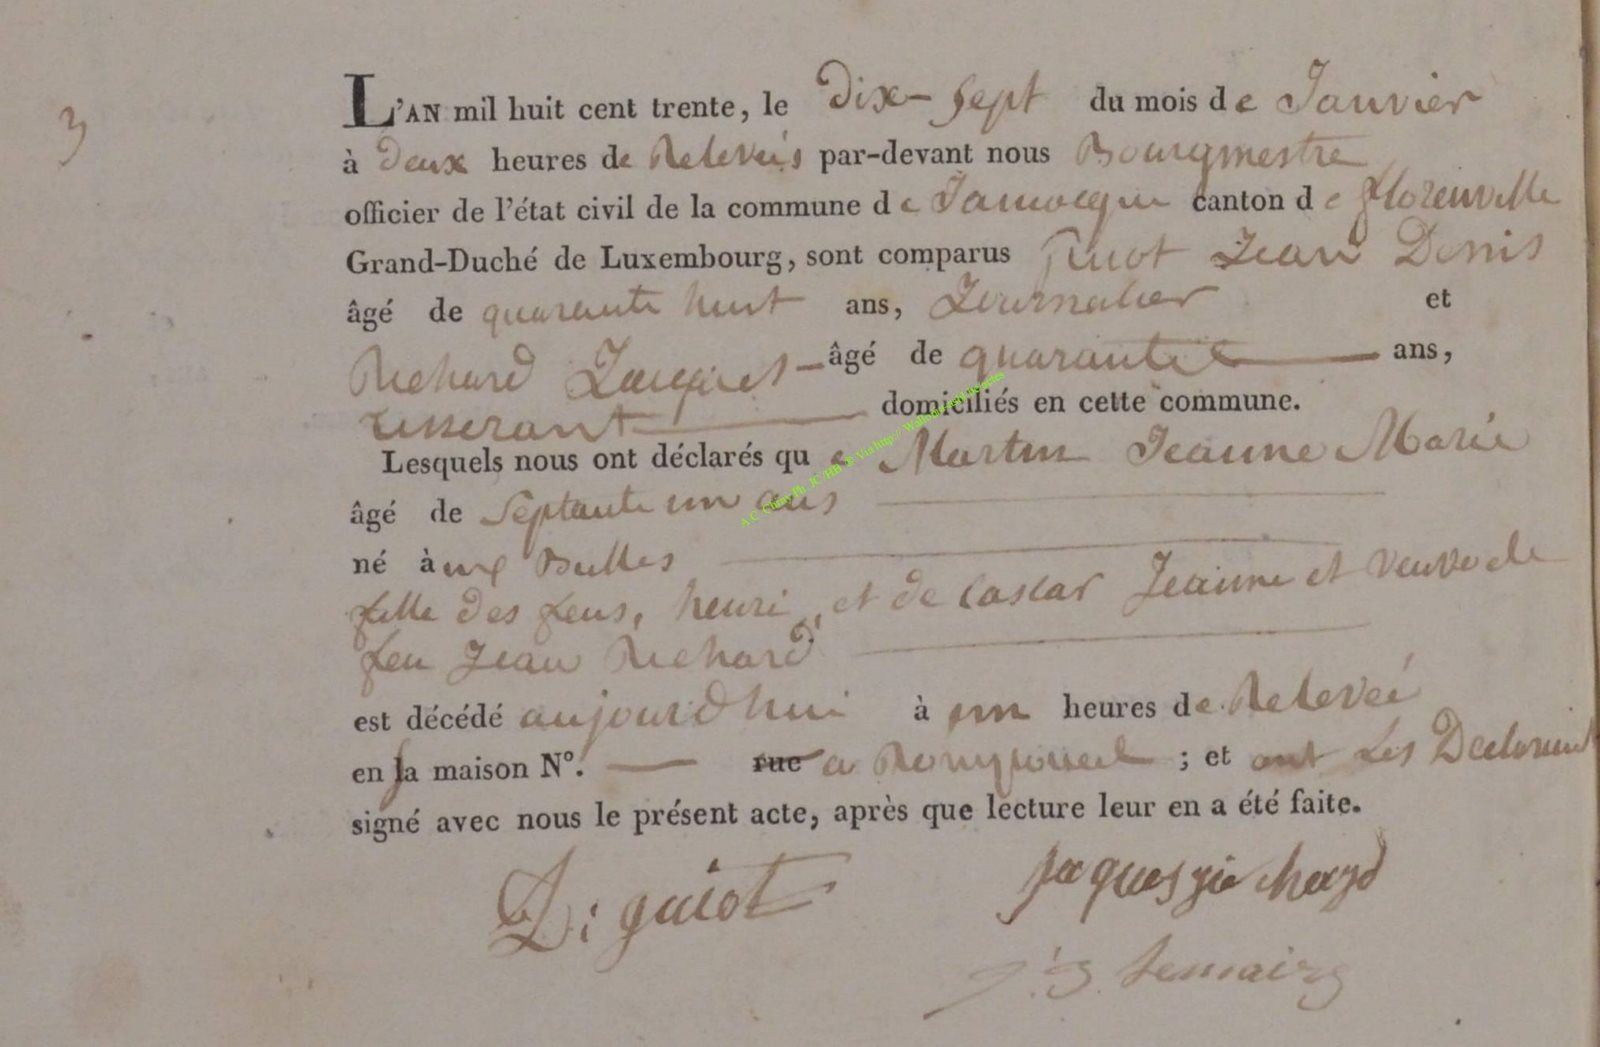 3
L'AN mil huit cent trente, le Dix-sept du mois de Janvier
à deux heures de Relevés par-devant nous Bourgmestre
officier de l'état civil de la commune de Jamoegne canton de florenville
Grand-Duché de Luxembourg, sont comparus Jean Denis
âgé de quarante huit ans, Journalier et
Richard Jacques âgé de quarante ans,
tisserant domiciliés en cette commune.
Lesquels nous ont déclarés que Martin Jeanne Marie
âgé de Septante un ans
né à aux Bulles
fille des feus, henri, et de Caslar Jeanne et veuve de
feu Jean Richard
est décédé aujourd'hui à un heures de Releveé
en sa maison N°. — rue a ; et ont Les Declarant
signé avec nous le présent acte, après que lecture leur en a été faite.
D: guiot
Jaques richard
J: B. Lemaire